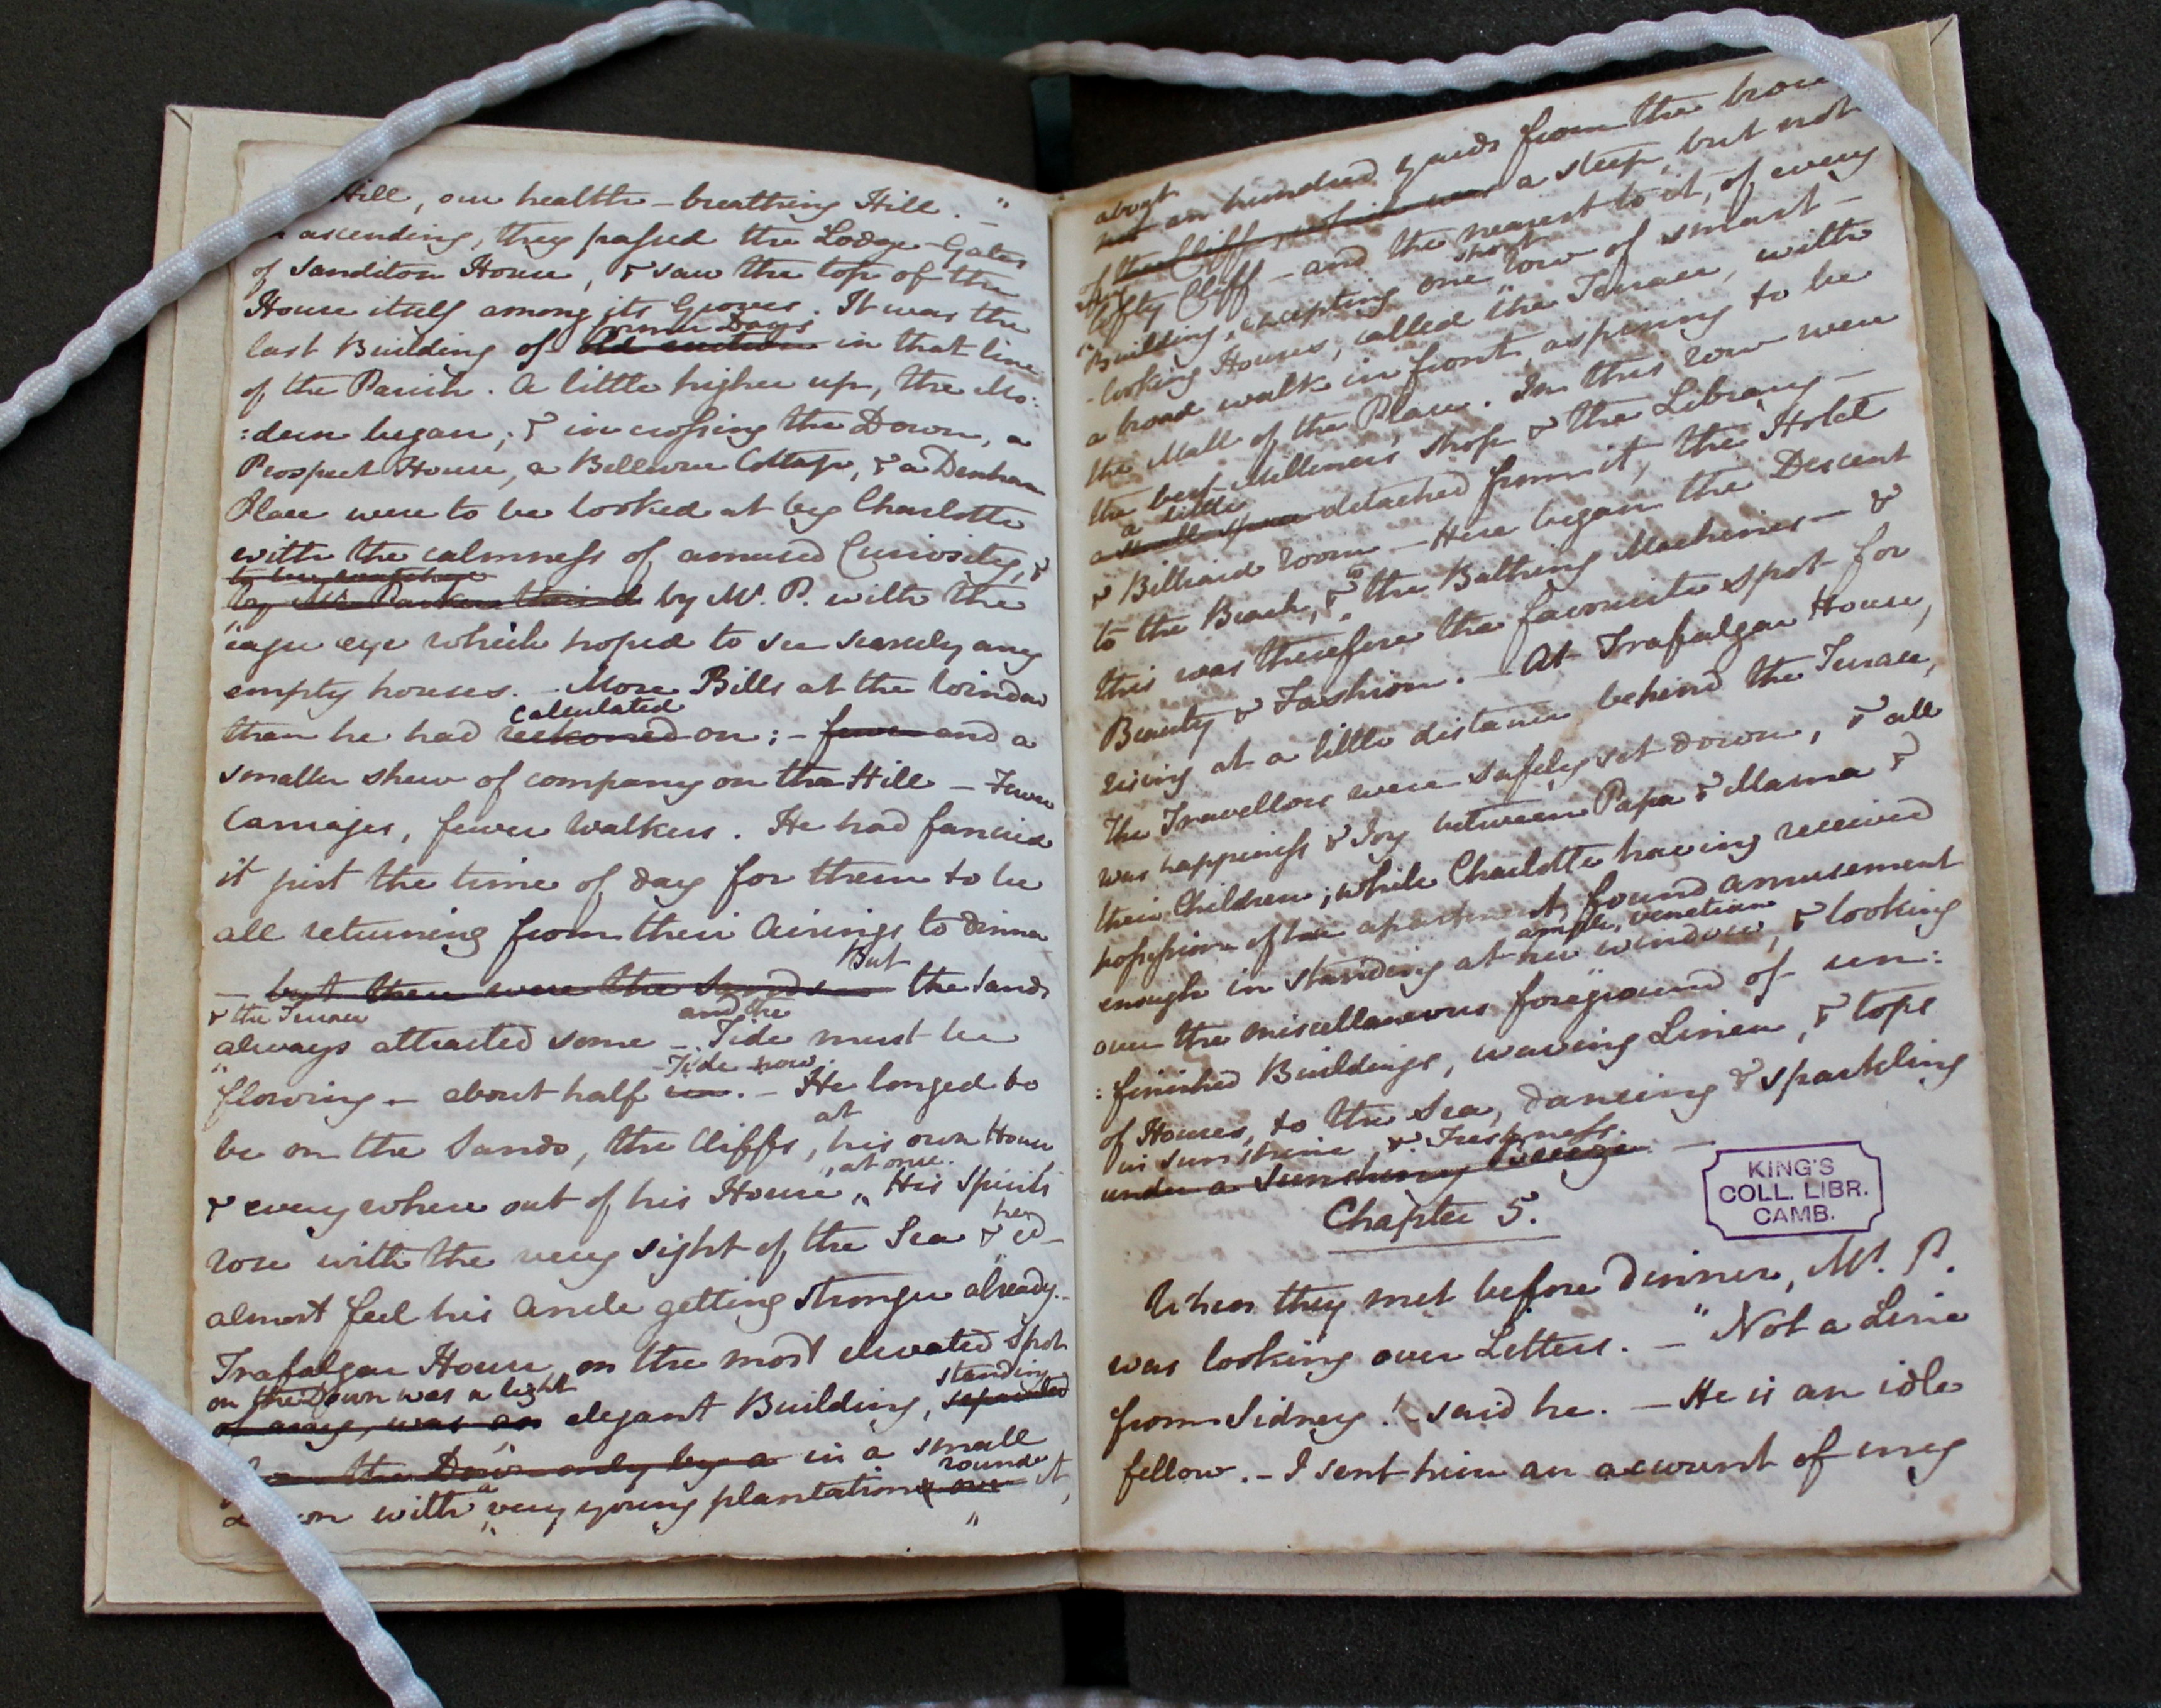 Hill, our health-breathing Hill. —"
ascending, they passed the Lodge-Gates
of Sanditon House, & saw the top of the
House itself among its Groves. It was the
former Days
last Building of in that line
of the Parish. A little higher up, the Mo:
:dern began; & in crossing the Down, a
Prospect House, a Bellevue Cottage, & a Denham
Place were to be looked at by Charlotte
with the calmness of amused Curiosity, &
by Mr. Parker by Mr. P. with the
eager eye which hoped to see scarcely any
empty houses. — More Bills at the Window
calculated
than he had reckoned on; — fewer and a
smaller shew of company on the Hill — Fewer
Carriages, fewer Walkers. He had fancied
it just the time of day for them to be
all returning from their Airings to dinner
But
— but there were the Sands the Sands
& the Terrace and the
always attracted some — Tide must be
Tide now.
flowing — about half in. — He longed to
at
be on the Sands, the Cliffs, his own House
, at once.
& every where out of his House. His Spirits
he
rose with the very sight of the Sea & cd
almost feel his Ancle getting stronger already. —
Trafalgar House, on the most elevated spot
on the Down was a light standing
of any, was an elegant Building, separated
the Down only by a in a small
round
Lawn with a very young plantation it,
about
not an hundred yards from the brow
of the Cliff, which was a steep, but not
lofty Cliff — and the nearest to it, of every
short
Building, excepting one row of smart-
-looking Houses, called the Terrace, with
a broad walk in front, aspiring to be
the Mall of the Place. In this row were
the best Milliner's shop & the Library —
a little
a small space detached from it, the Hotel
& Billiard room — Here began the Descent
to
to the Beach, & the Bathing Machines — &
this was therefore the favourite spot for
Beauty & Fashion. — At Trafalgar House,
rising at a little distance behind the Terrace,
the Travellers were safely set down, & all
was happiness & Joy between Papa & Mama &
their Children; while Charlotte having received
possession of her apartment, found amusement
ample, venetian
enough in standing at her window, & looking
over the miscellaneous foreground of un:
:finished Buildings, waving Linen, & tops
of Houses, to the Sea, dancing & sparkling
in Sunshine & Freshness.
under a Sunshiny Breeze. —
KING'S
COLL. LIBR.
CAMB.
Chapter 5.
When they met before dinner, Mr. P.
was looking over Letters. — "Not a Line
from Sidney! — said he. — He is an idle
fellow. — I sent him an account of my